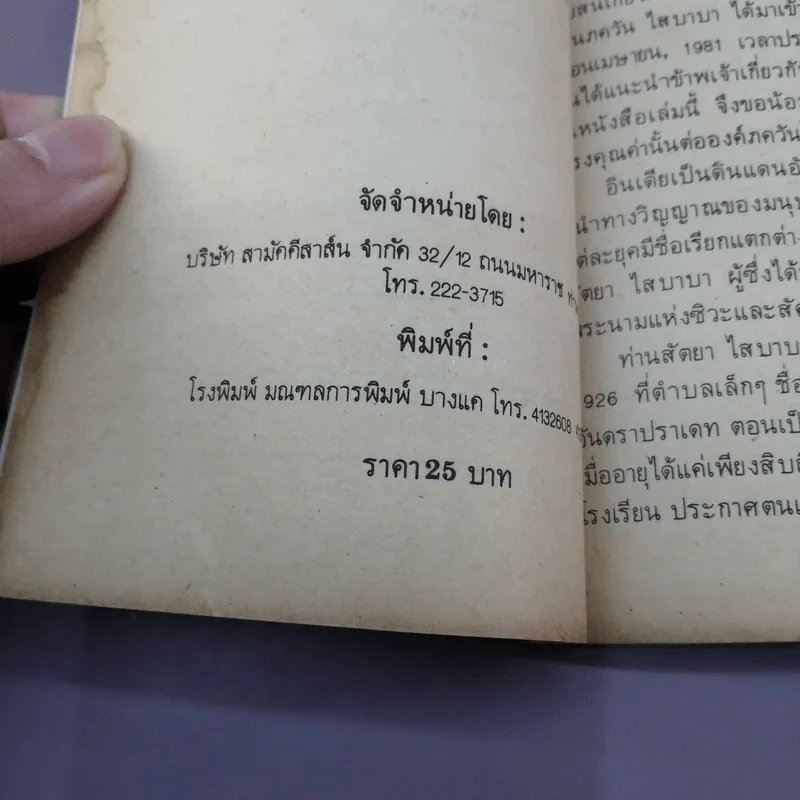 จัดจำหน่ายโดย :
บริษัท สามัคคีสาส์น จำกัด 32/12 ถนนมหาราช
โทร. 222-3715
พิมพ์ที่ :
โรงพิมพ์ มณฑลการพิมพ์ บางแค โทร. 4132608
ราคา 25 บาท
ไสบาบา ได้มาเข้า
1981 เวลา
ได้แนะนำข้าพเจ้าเกี่ยวกับ
หนังสือเล่มนี้ จึงขอน้อ
คุณค่านั้นต่อองค์ภควัน
อินเดียเป็นดินแดน
นำทางวิญญาณของมนุษ
ต่ละยุคมีชื่อเรียกแตกต่าง
สัตยา ไสบาบา ผู้ซึ่งได้
พระนามแห่งชิวะและ
ท่านสัตยา ไสบาบ
926 ที่ตำบลเล็กๆ ชื่อ
ันดราปราเดท ตอนเป็
มื่ออายุได้แค่เพียงสิบ
โรงเรียน ประกาศตน